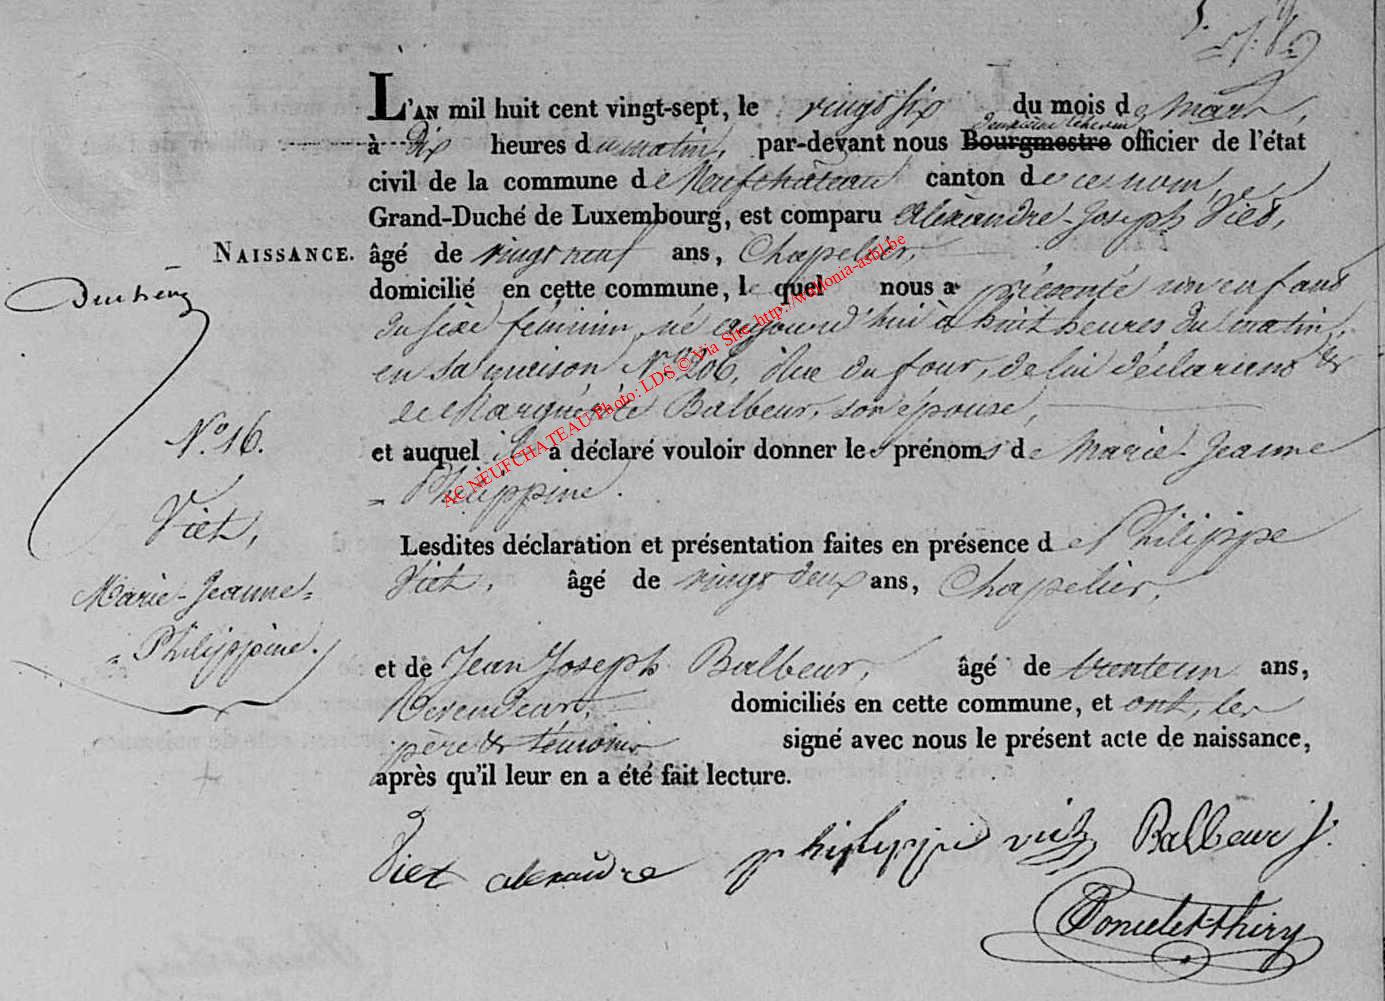 L'AN mil huit cent vingt-sept, le vingt six du mois de Mars,
à Dix heures du matin, par-devant nous Bourgmestre officier de l'état
civil de la commune de Neufchâteau canton de ce nom,
Grand-Duché de Luxembourg, est comparu Alexandre-Joseph Viet,
NAISSANCE. âgé de vingt neuf ans, Chapelier,
domicilié en cette commune, lequel nous a présenté un enfant
du sexe féminin, né aujourd'hui à huit heures du matin,
en sa maison N.° 206, rue du four, de lui déclarant &
de Marguérite Balbeur, son épouse,
et auquel il a déclaré vouloir donner les prénoms de Marie-Jeanne
= Philippine.
Lesdites déclaration et présentation faites en présence de Philippe
Viet, âgé de vingt deux ans, Chapelier,
et de Jean Joseph Balbeur, âgé de trente un ans,
domiciliés en cette commune, et ont, les
père & témoins signé avec nous le présent acte de naissance,
après qu'il leur en a été fait lecture.
N.° 16.
Viet,
Marie-Jeanne=
= Philippine.
Viet alexandre philippe viet Balbeur j.
Poncelet-Thiry
AC NEUFCHATEAU Photo: LDS © Via Site http://wallonia-asbl.be